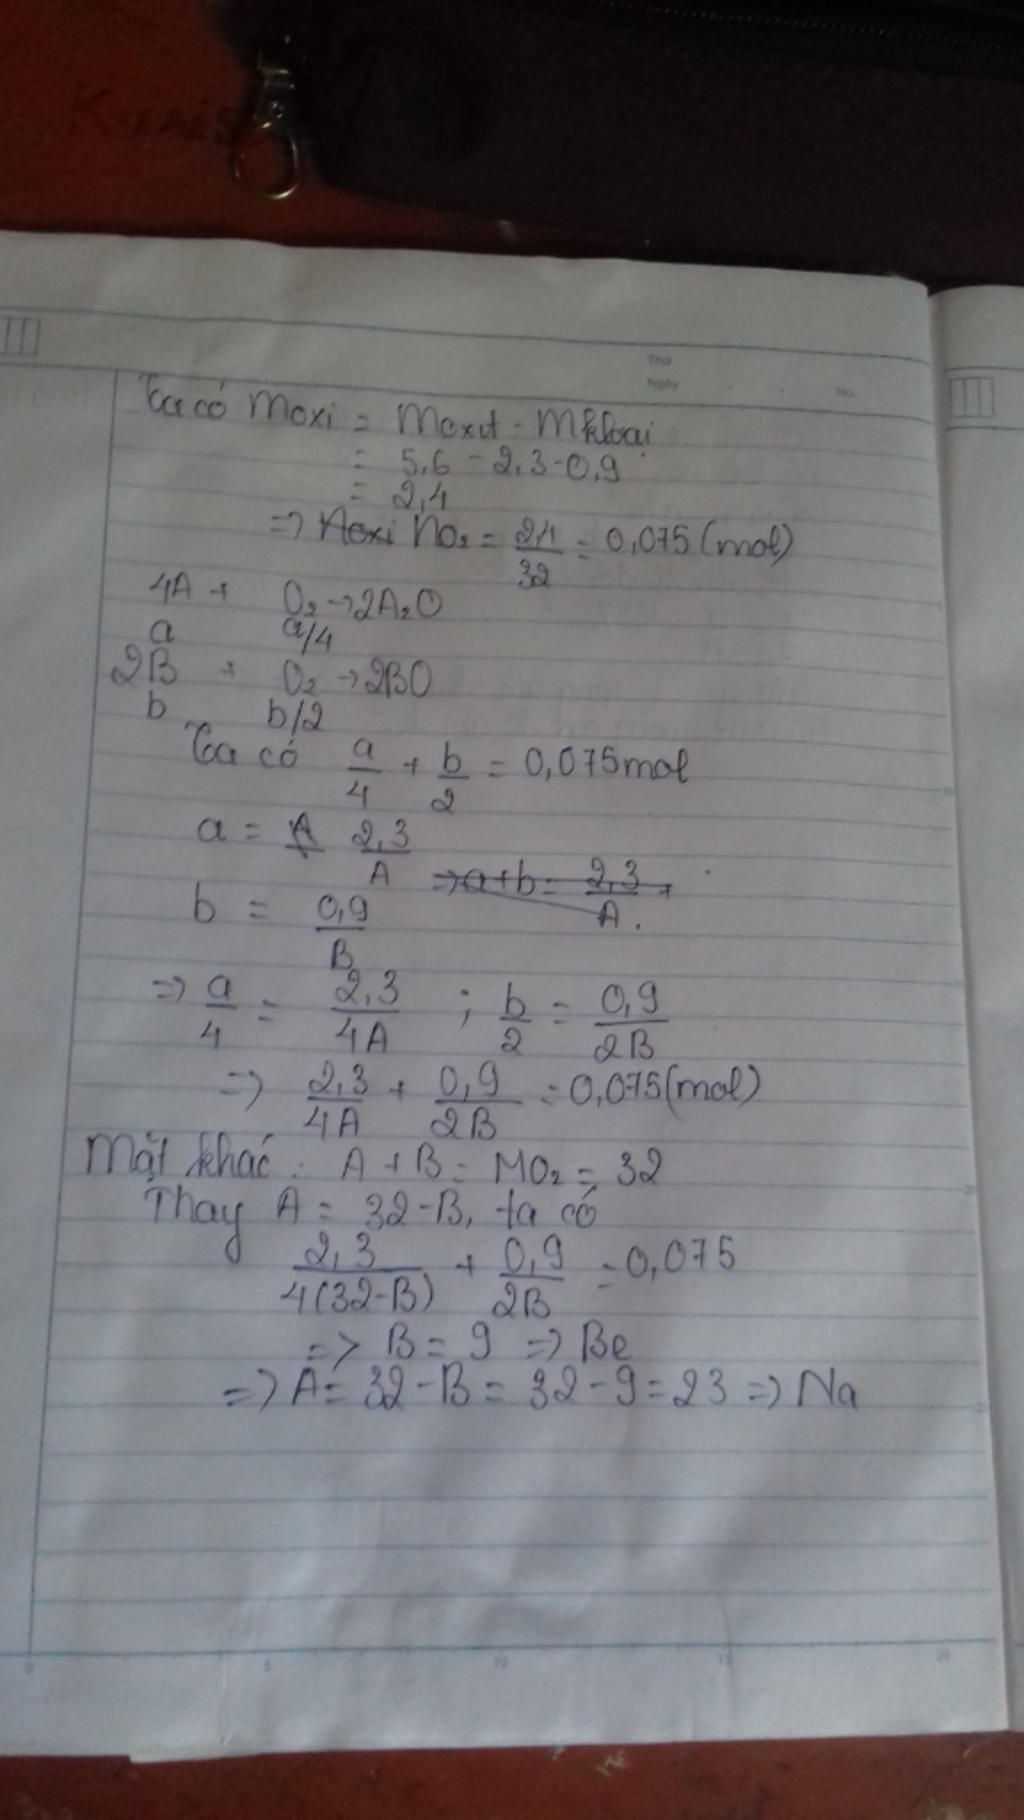 Thứ
Ngày No.
Ta có Moxi = Moxit - Mkloại
= 5,6 - 2,3 - 0,9
= 2,4
=> nO₂ = 2,4/32 = 0,075 (mol)
4A + O₂ → 2A₂O
a a/4
2B + O₂ → 2BO
b b/2
Ta có a/4 + b/2 = 0,075 mol
a = 2,3/A => a + b = 2,3/A +
b = 0,9/B
=> a/4 = 2,3/4A ; b/2 = 0,9/2B
=> 2,3/4A + 0,9/2B = 0,075 (mol)
Mặt khác: A + B = MO₂ = 32
Thay A = 32 - B, ta có
2,3/4(32-B) + 0,9/2B = 0,075
=> B = 9 => Be
=> A = 32 - B = 32 - 9 = 23 => Na
0 5 10 15 20